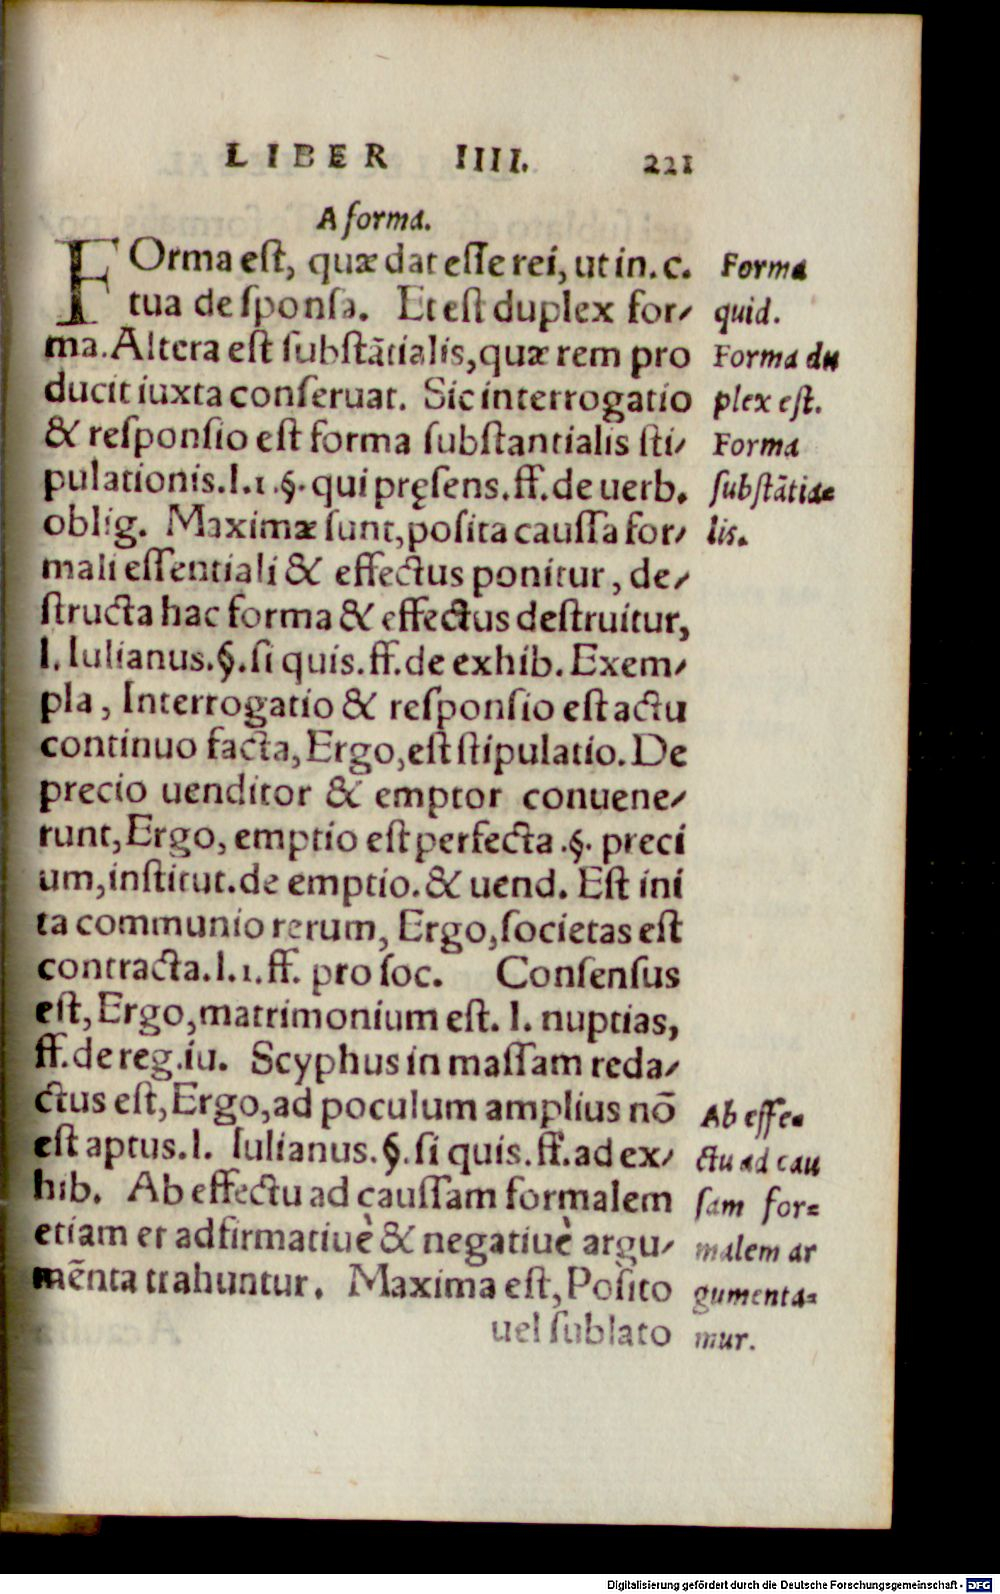 LIBER IIII. 221
A forma.
FOrma est, quæ dat esse rei, ut in. c.
tua de sponsa. Et est duplex for/
ma. Altera est substātialis, quæ rem pro
ducit iuxta conseruat. Sic interrogatio
& responsio est forma substantialis sti/
pulationis. l. 1 .§. qui pręsens. ff. de uerb.
oblig. Maximæ sunt, posita caussa for/
mali essentiali & effectus ponitur, de/
structa hac forma & effectus destruitur,
l. Iulianus. §. si quis. ff. de exhib. Exem/
pla, Interrogatio & responsio est actu
continuo facta, Ergo, est stipulatio. De
precio uenditor & emptor conuene/
runt, Ergo, emptio est perfecta .§. preci
um, institut. de emptio. & uend. Est ini
ta communio rerum, Ergo, societas est
contracta. l. 1. ff. pro soc. Consensus
est, Ergo, matrimonium est. l. nuptias,
ff. de reg. iu. Scyphus in massam reda/
ctus est, Ergo, ad poculum amplius nō
est aptus. l. Iulianus. §. si quis. ff. ad ex/
hib. Ab effectu ad caussam formalem
etiam et adfirmatiuè & negatiuè argu/
mēnta trahuntur. Maxima est, Posito
uel sublato
Forma
quid.
Forma du
plex est.
Forma
substātia=
lis.
Ab effe=
ctu ad cau
sam for=
malem ar
gumenta=
mur.
Digitalisierung gefördert durch die Deutsche Forschungsgemeinschaft - DFG